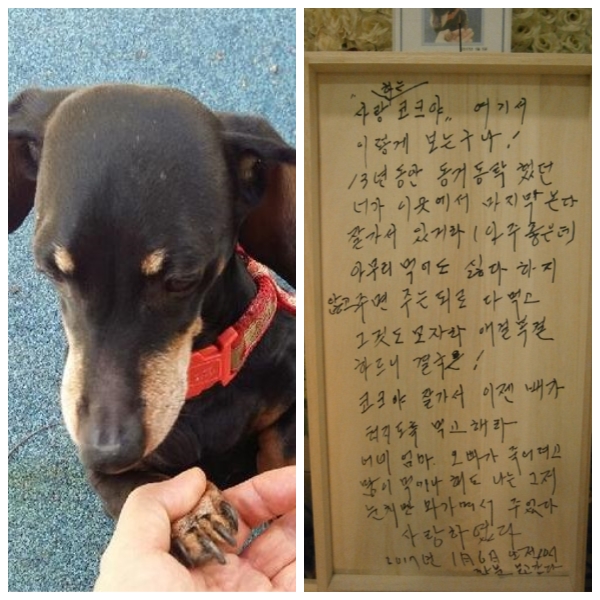 "사랑하는 코크야" 여기서
이렇게 보는구나!
13년 동안 동거동락 했던
너가 이곳에서 마지막 본다
잘가서 있거라 (아주 좋은데
아무리 먹어도 싫다 하지
않고 주면 주는되로 다 먹고
그것도 모자라 애걸복걸
하드니 결국은!
코크야 잘가서 이젠 배가
터지도록 먹고 해라
너네 엄마. 오빠가 죽어라고
많이 먹이나 해도 나는 그저
눈치만 봐가며서 주었다
사랑하였다
2017년 1月 6日